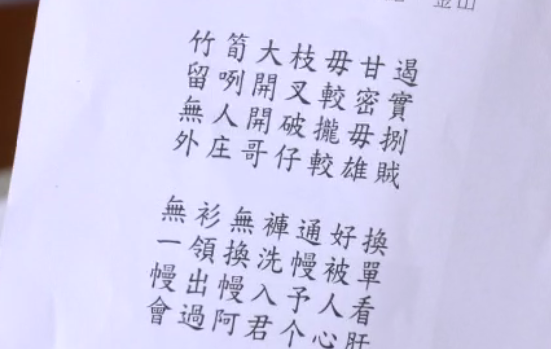 金山
竹筍大枝毋甘遏
留咧開叉較密實
無人開破攏毋捌
外庄哥仔較雄賊
無衫無褲通好換
一領換洗幔被單
幔出幔入予人看
會過阿君个心肝